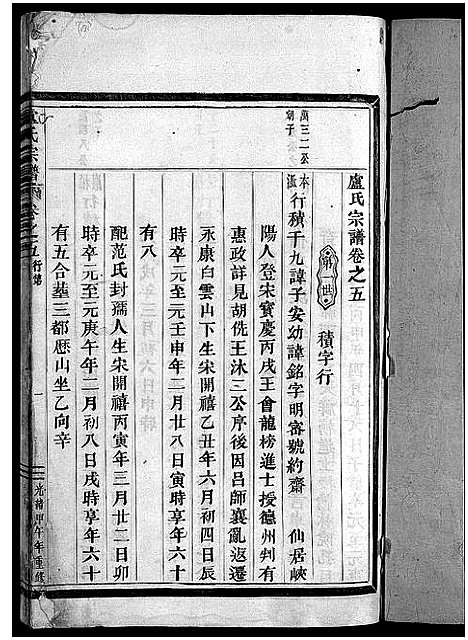 盧氏宗譜卷之五
第一世　積字行
萬三二公
幼子
本
溫
行積千九諱子安幼諱銘字明審號約齋　仙居峽
陽人登宋寶慶丙戌王會龍榜進士授德州判有
惠政詳見胡洗王沐三公序後因呂師襄亂返遷
永康白雲山下生宋開禧乙丑年六月初四日辰
時卒元至元壬申年二月廿八日寅時享年六十
有八
配范氏封孺人生宋開禧丙寅年三月廿二日卯
時卒元至元庚午年二月初八日戌時享年六十
有五合墓三都厯山坐乙向辛
盧氏宗譜　卷之五行第　一　光緒甲午年重修